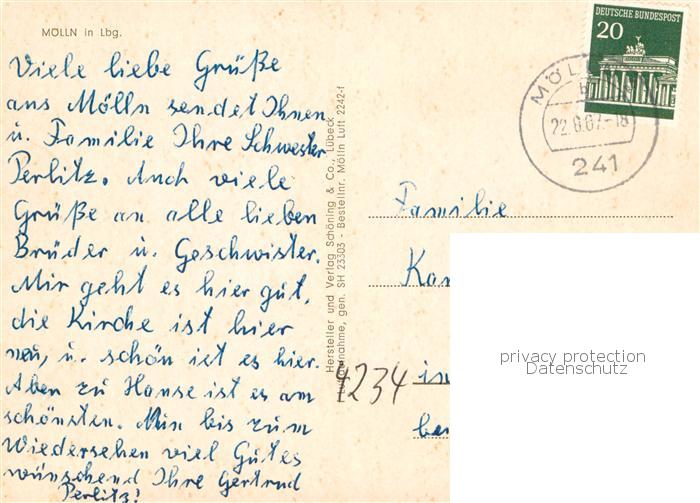 MÖLLN in Lbg.
Viele liebe Grüße
aus Mölln sendet Ihnen
u. Familie Ihre Schwester
Perlitz. Auch viele
Grüße an alle lieben
Brüder u. Geschwister.
Mir geht es hier gut,
die Kirche ist hier
neu, u. schön ist es hier.
Aben zu Hause ist es am
schönsten. Nun bis zum
Wiedersehen viel Gutes
wünschend Ihre Gertrud
Perlitz!
Hersteller und Verlag Schöning & Co., Lübeck
gen. SH 23303 - Bestellnr. Mölln Luft 2242-f
DEUTSCHE BUNDESPOST
20
22.8.67-18
241
Familie
4234 in
privacy protection
Datenschutz